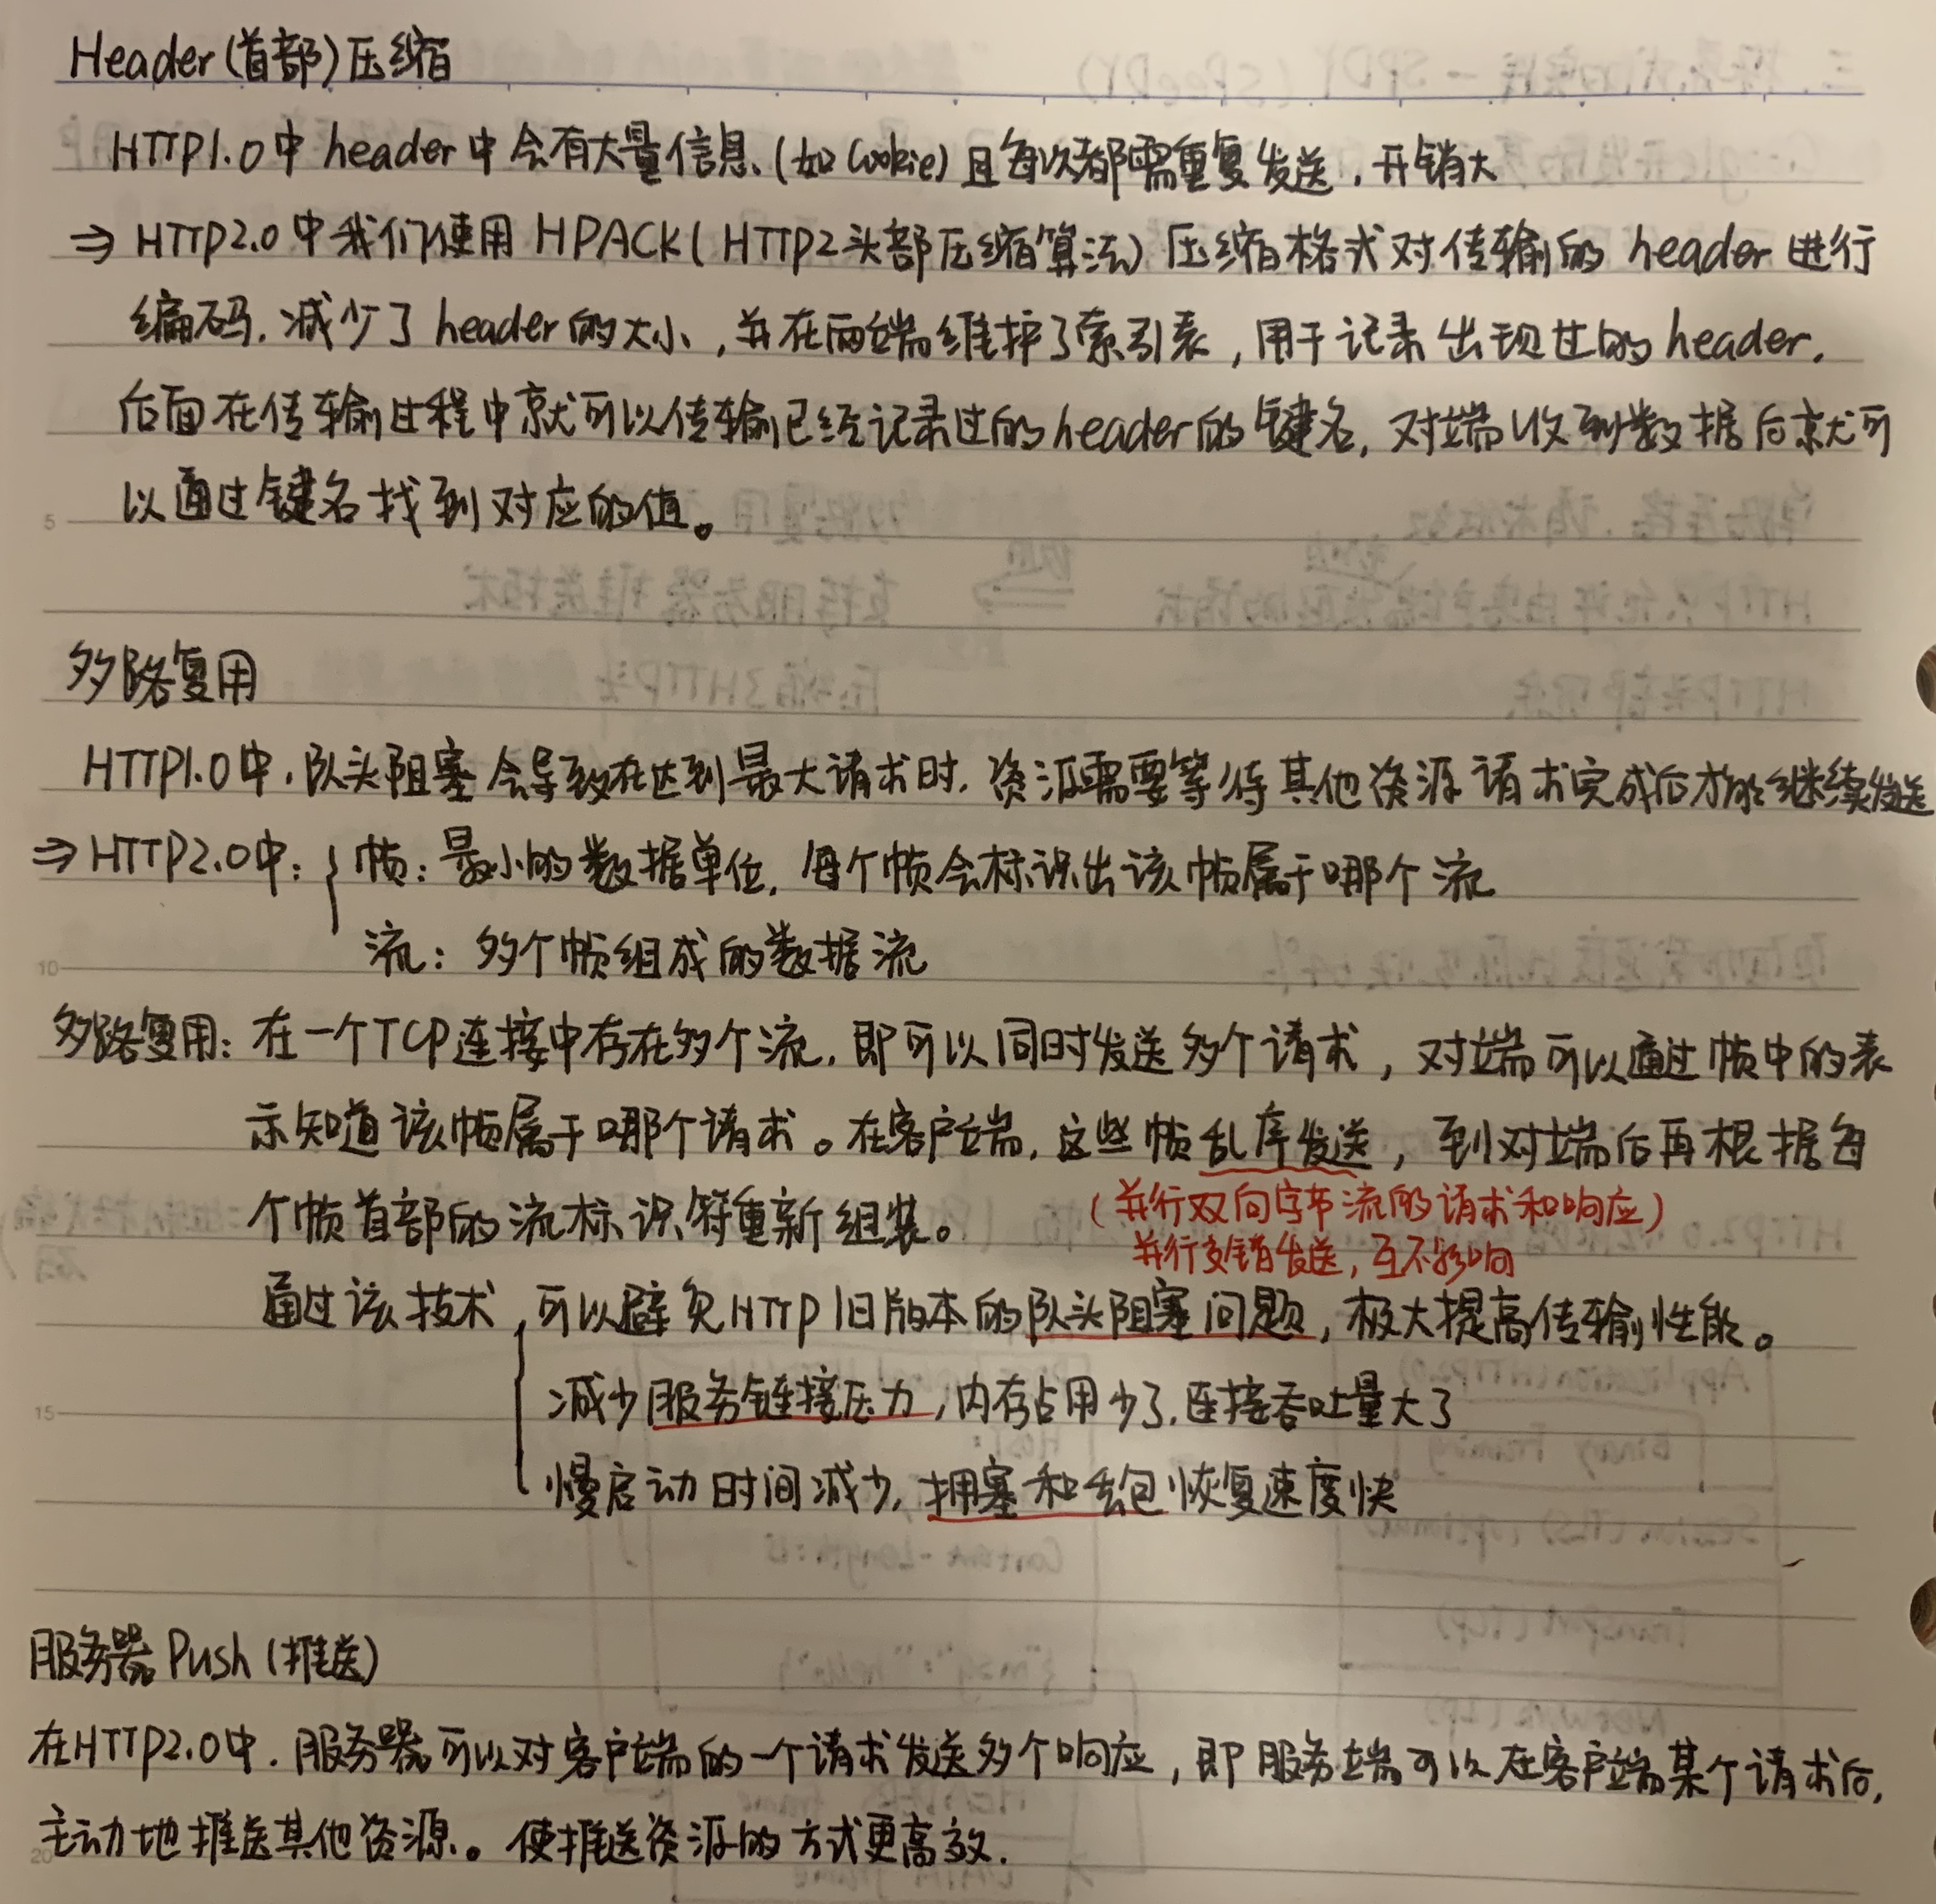 Header(首部)压缩
HTTP1.0中header中会有大量信息、(如Cookie)且每次都需重复发送,开销大
⇒ HTTP2.0中我们使用HPACK(HTTP2头部压缩算法)压缩格式对传输的header进行
编码,减少了header的大小,并在两端维护了索引表,用于记录出现过的header,
后面在传输过程中就可以传输已经记录过的header的键名,对端收到数据后就可
以通过键名找到对应的值。
多路复用
HTTP1.0中,队头阻塞会导致在达到最大请求时,资源需要等待其他资源请求完成后才能继续发送
⇒ HTTP2.0中: { 帧:最小的数据单位,每个帧会标识出该帧属于哪个流
流:多个帧组成的数据流
多路复用:在一个TCP连接中存在多个流,即可以同时发送多个请求,对端可以通过帧中的表
示知道该帧属于哪个请求。在客户端,这些帧乱序发送,到对端后再根据每
个帧首部的流标识符重新组装。(并行双向字节流的请求和响应)
并行交错发送,互不影响
通过该技术,可以避免HTTP旧版本的队头阻塞问题,极大提高传输性能。
减少服务链接压力,内存占用少了,连接吞吐量大了
慢启动时间减少,拥塞和丢包恢复速度快
服务器Push(推送)
在HTTP2.0中,服务器可以对客户端的一个请求发送多个响应,即服务端可以在客户端某个请求后,
主动地推送其他资源。使推送资源的方式更高效.